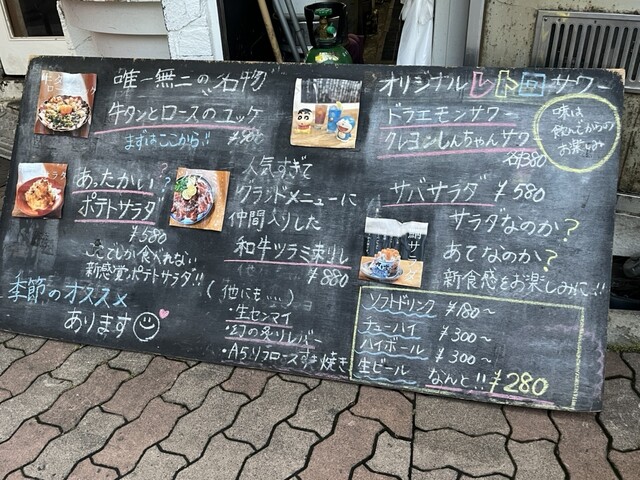 唯一無二の"名物"
牛タンとロースのユッケ
まずはここから!!
あったかい?
ポテトサラダ
¥580
ここでしか食べれない
新感覚ポテトサラダ!!
季節のオススメ
あります
人気すぎて
グランドメニューに
仲間入りした
和牛ツラミ刺し
¥880
(他にも....)
・生センマイ
・幻の炙りレバー
・A5リブロースすき焼き
オリジナルレトロサワー
ドラエモンサワー
クレヨンしんちゃんサワー
各¥380
味は
飲んでからの
お楽しみ
サバサラダ ¥580
サラダなのか?
あてなのか?
新食感をお楽しみに!!
ソフトドリンク ¥180~
チューハイ ¥300~
ハイボール ¥300~
生ビール なんと!! ¥280